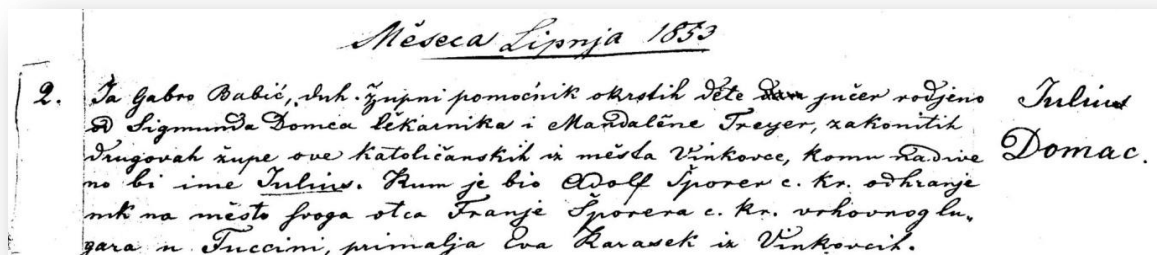 Měseca Lipnja 1853
2. Ja Gabro Babić, duh. župni pomoćnik okrstih děte jučer rodjeno
od Sigmunda Domca lěkarnika i Mandalěne Treyer, zakonitih
drugovah župe ove katoličanskih iz města Vinkovce, komu nadive
no bi ime Julius. Kum je bio Adolf Šporer c. kr. odhranje
nik na město svoga otca Franje Šporera c. kr. vrhovnog lu-
gara u Fuccini, primalja Eva Karasek iz Vinkovcih.
Julius
Domac.